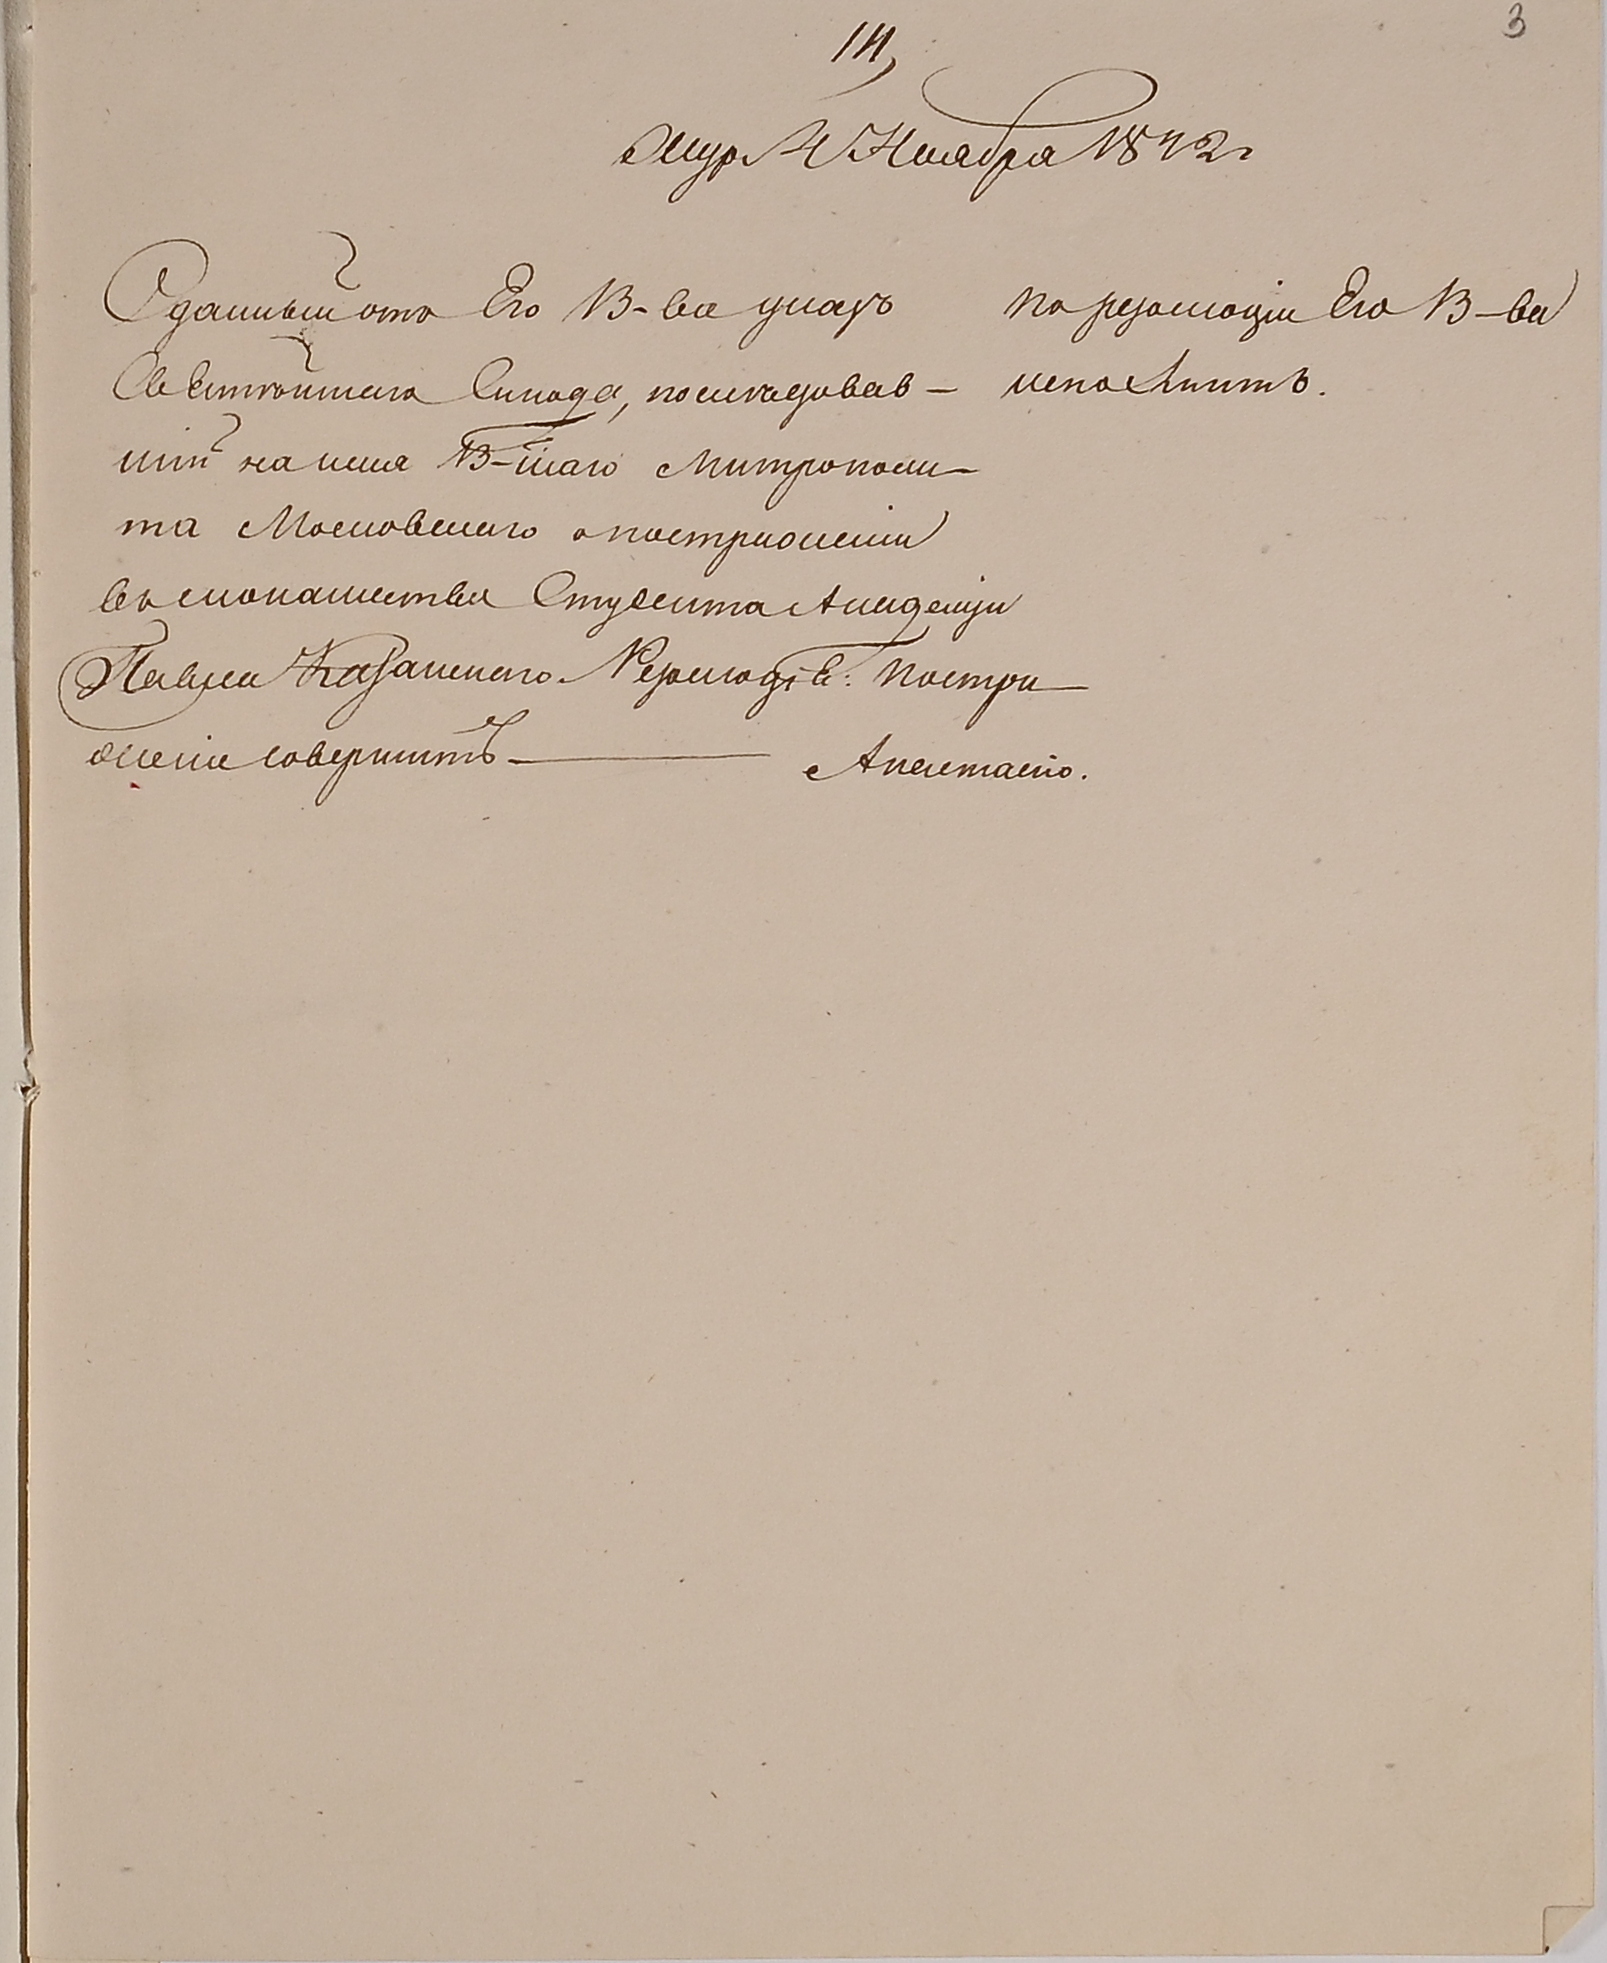 3
14,
Жур. 4 Ноября 1842 г
Сданный отъ Его В-ва указъ
Святѣйшаго Синода, последовав-
шій на имя В-шаго Митрополи-
та Московскаго о постриженіи
въ монашество Студента Академіи
Павла Казанскаго. Резолюція: постри-
женіе совершить
По резолюціи Его В-ва
исполнить.